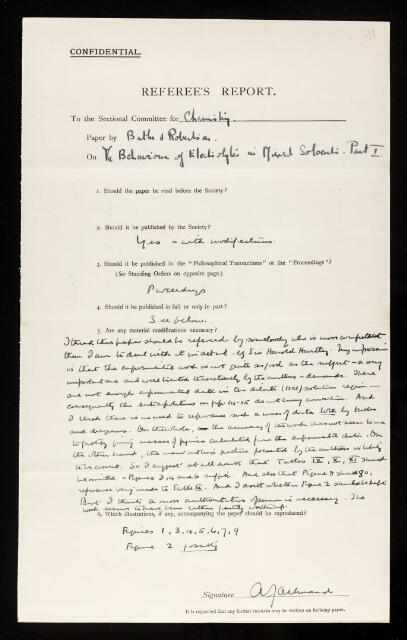 39
CONFIDENTIAL.
REFEREE'S REPORT.
To the Sectional Committee for Chemistry.
Paper by Butler & Robertson.
On The Behaviour of Electrolytes in Mixed Solvents. Part I
1. Should the paper be read before the Society?
2. Should it be published by the Society?
Yes - with modifications.
3. Should it be published in the "Philosophical Transactions" or the "Proceedings"?
(See Standing Orders on opposite page.)
Proceedings
4. Should it be published in full or only in part?
See below.
5. Are any material modifications necessary?
I think this paper should be refereed by somebody who is more competent
than I am to deal with it in detail - eg Sir Harold Hartley. My impression
is that the experimental work is not quite as good as the subject - a very
important one and well treated theoretically by the authors - demands. There
are not enough experimental data in the dilute (HCl) solution region -
consequently the extrapolations on pp 14-15 do not carry conviction. And
I think there is no need to reproduce such a mass of data both by tables
and diagrams. On the whole, the accuracy of the work does not seem to me
to justify giving masses of figures calculated from the experimental data. On
the other hand, the main outlines picture presented by the authors is likely
to be correct. So I suggest at all events that Tables IX, X, XI should
be omitted - Figures 3, 4 and 5 supply. And also that Figure 8 should go,
reference being made to Table. And I doubt whether Figure 2 is
But I think a more authoritative opinion is necessary. The
work seems to have been rather hastily written up.
6. Which illustrations, if any, accompanying the paper should be reproduced?
Figures 1, 3, 4, 5, 6, 7, 9
Figure 2 possibly
Signature
It is requested that any further remarks may be written on foolscap paper.